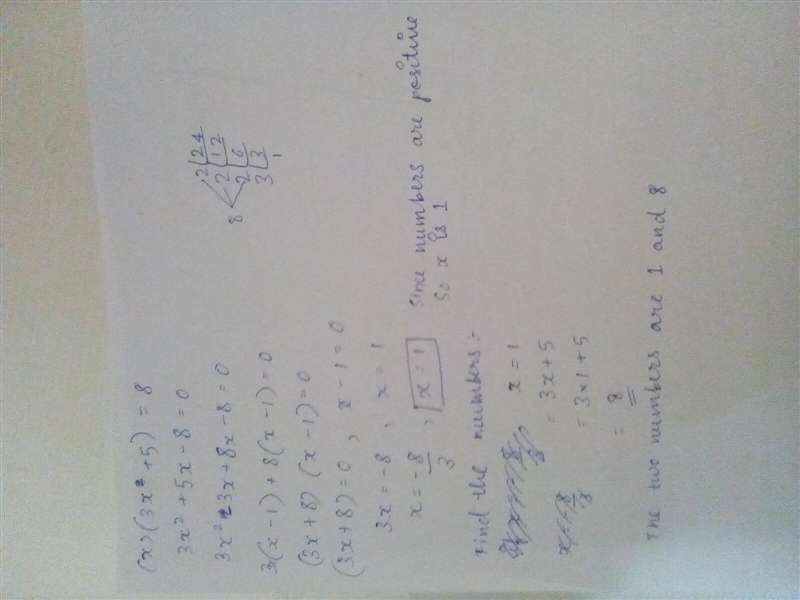 (x)(3x²+5) = 8
3x² + 5x - 8 = 0
3x² - 3x + 8x - 8 = 0
3(x-1) + 8(x-1) = 0
(3x+8) (x-1) = 0
(3x+8) = 0 , x - 1 = 0
3x = -8 , x = 1
x = -8/3 , x = 1
8
2 24
2 12
2 6
3 3
1
Since numbers are positive
So x is 1
Find the numbers:-
x = 1
= 3x + 5
= 3x1 + 5
= 8
The two numbers are 1 and 8